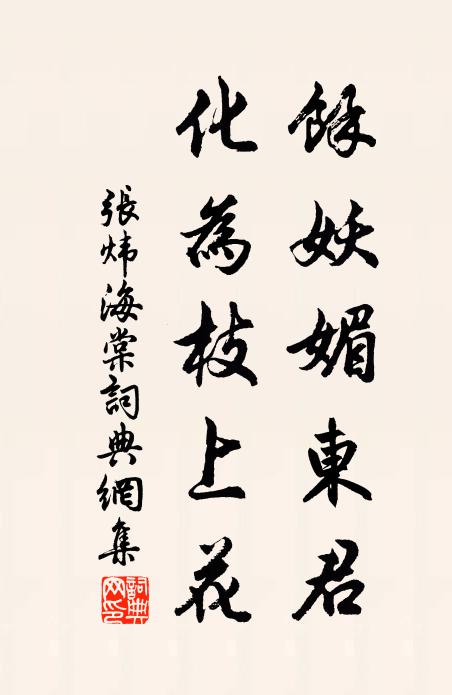 餘妖媚東君
化為枝上花
張煒海棠詞典網集
詞典網印